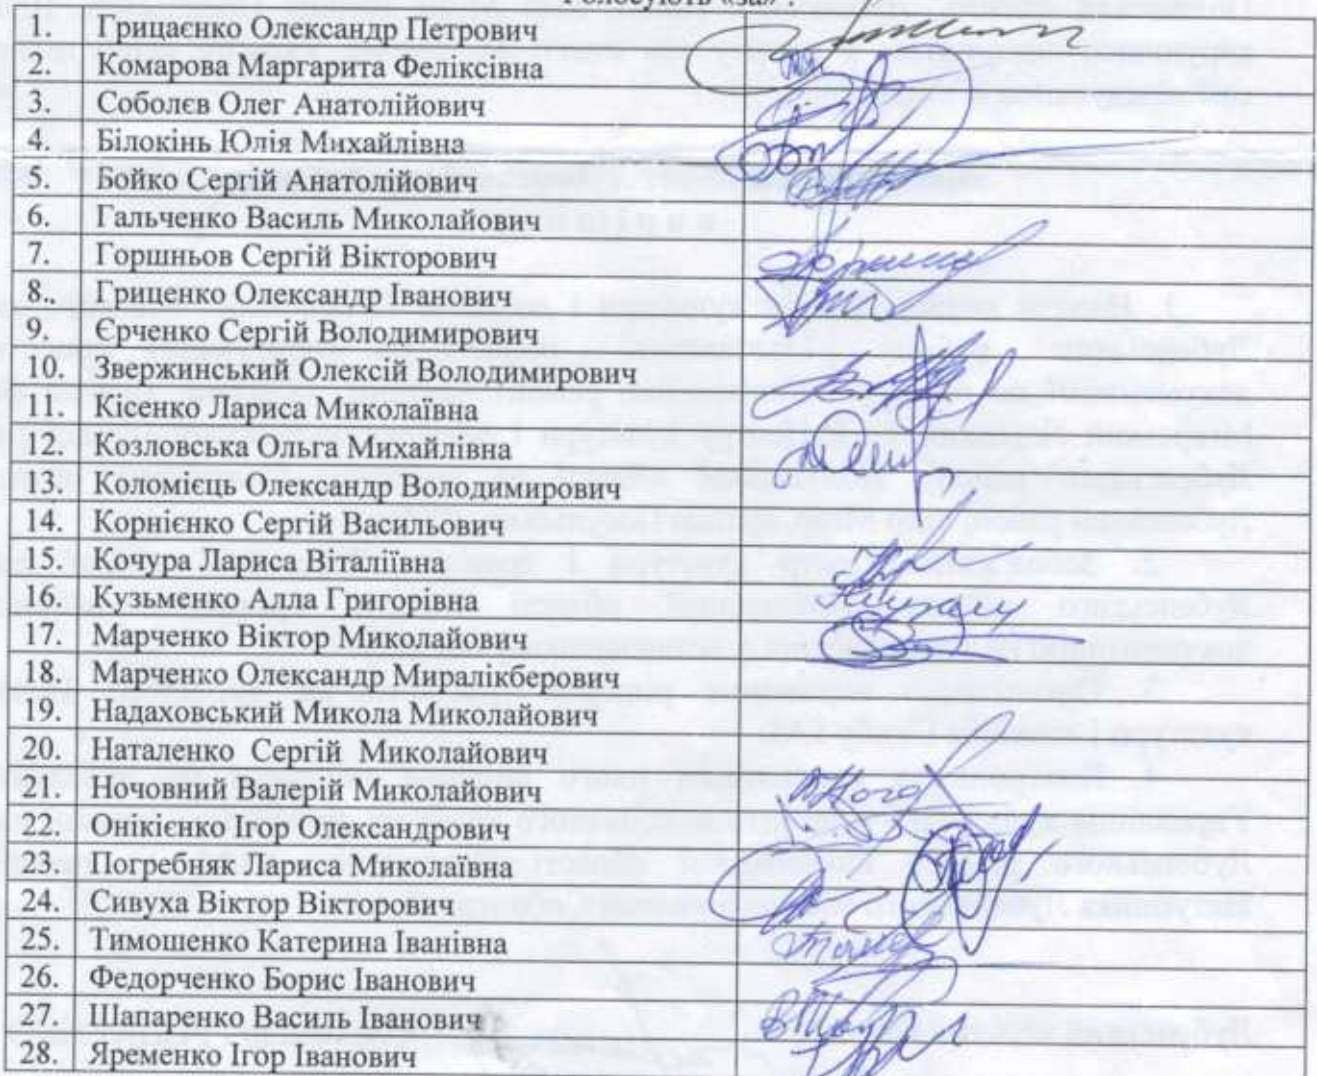 Голосують «за» :
1. Грицаєнко Олександр Петрович
2. Комарова Маргарита Феліксівна
3. Соболєв Олег Анатолійович
4. Білокінь Юлія Михайлівна
5. Бойко Сергій Анатолійович
6. Гальченко Василь Миколайович
7. Горшньов Сергій Вікторович
8.. Гриценко Олександр Іванович
9. Єрченко Сергій Володимирович
10. Звержинський Олексій Володимирович
11. Кісенко Лариса Миколаївна
12. Козловська Ольга Михайлівна
13. Коломієць Олександр Володимирович
14. Корнієнко Сергій Васильович
15. Кочура Лариса Віталіївна
16. Кузьменко Алла Григорівна
17. Марченко Віктор Миколайович
18. Марченко Олександр Миралікберович
19. Надаховський Микола Миколайович
20. Наталенко Сергій Миколайович
21. Ночовний Валерій Миколайович
22. Онікієнко Ігор Олександрович
23. Погребняк Лариса Миколаївна
24. Сивуха Віктор Вікторович
25. Тимошенко Катерина Іванівна
26. Федорченко Борис Іванович
27. Шапаренко Василь Іванович
28. Яременко Ігор Іванович